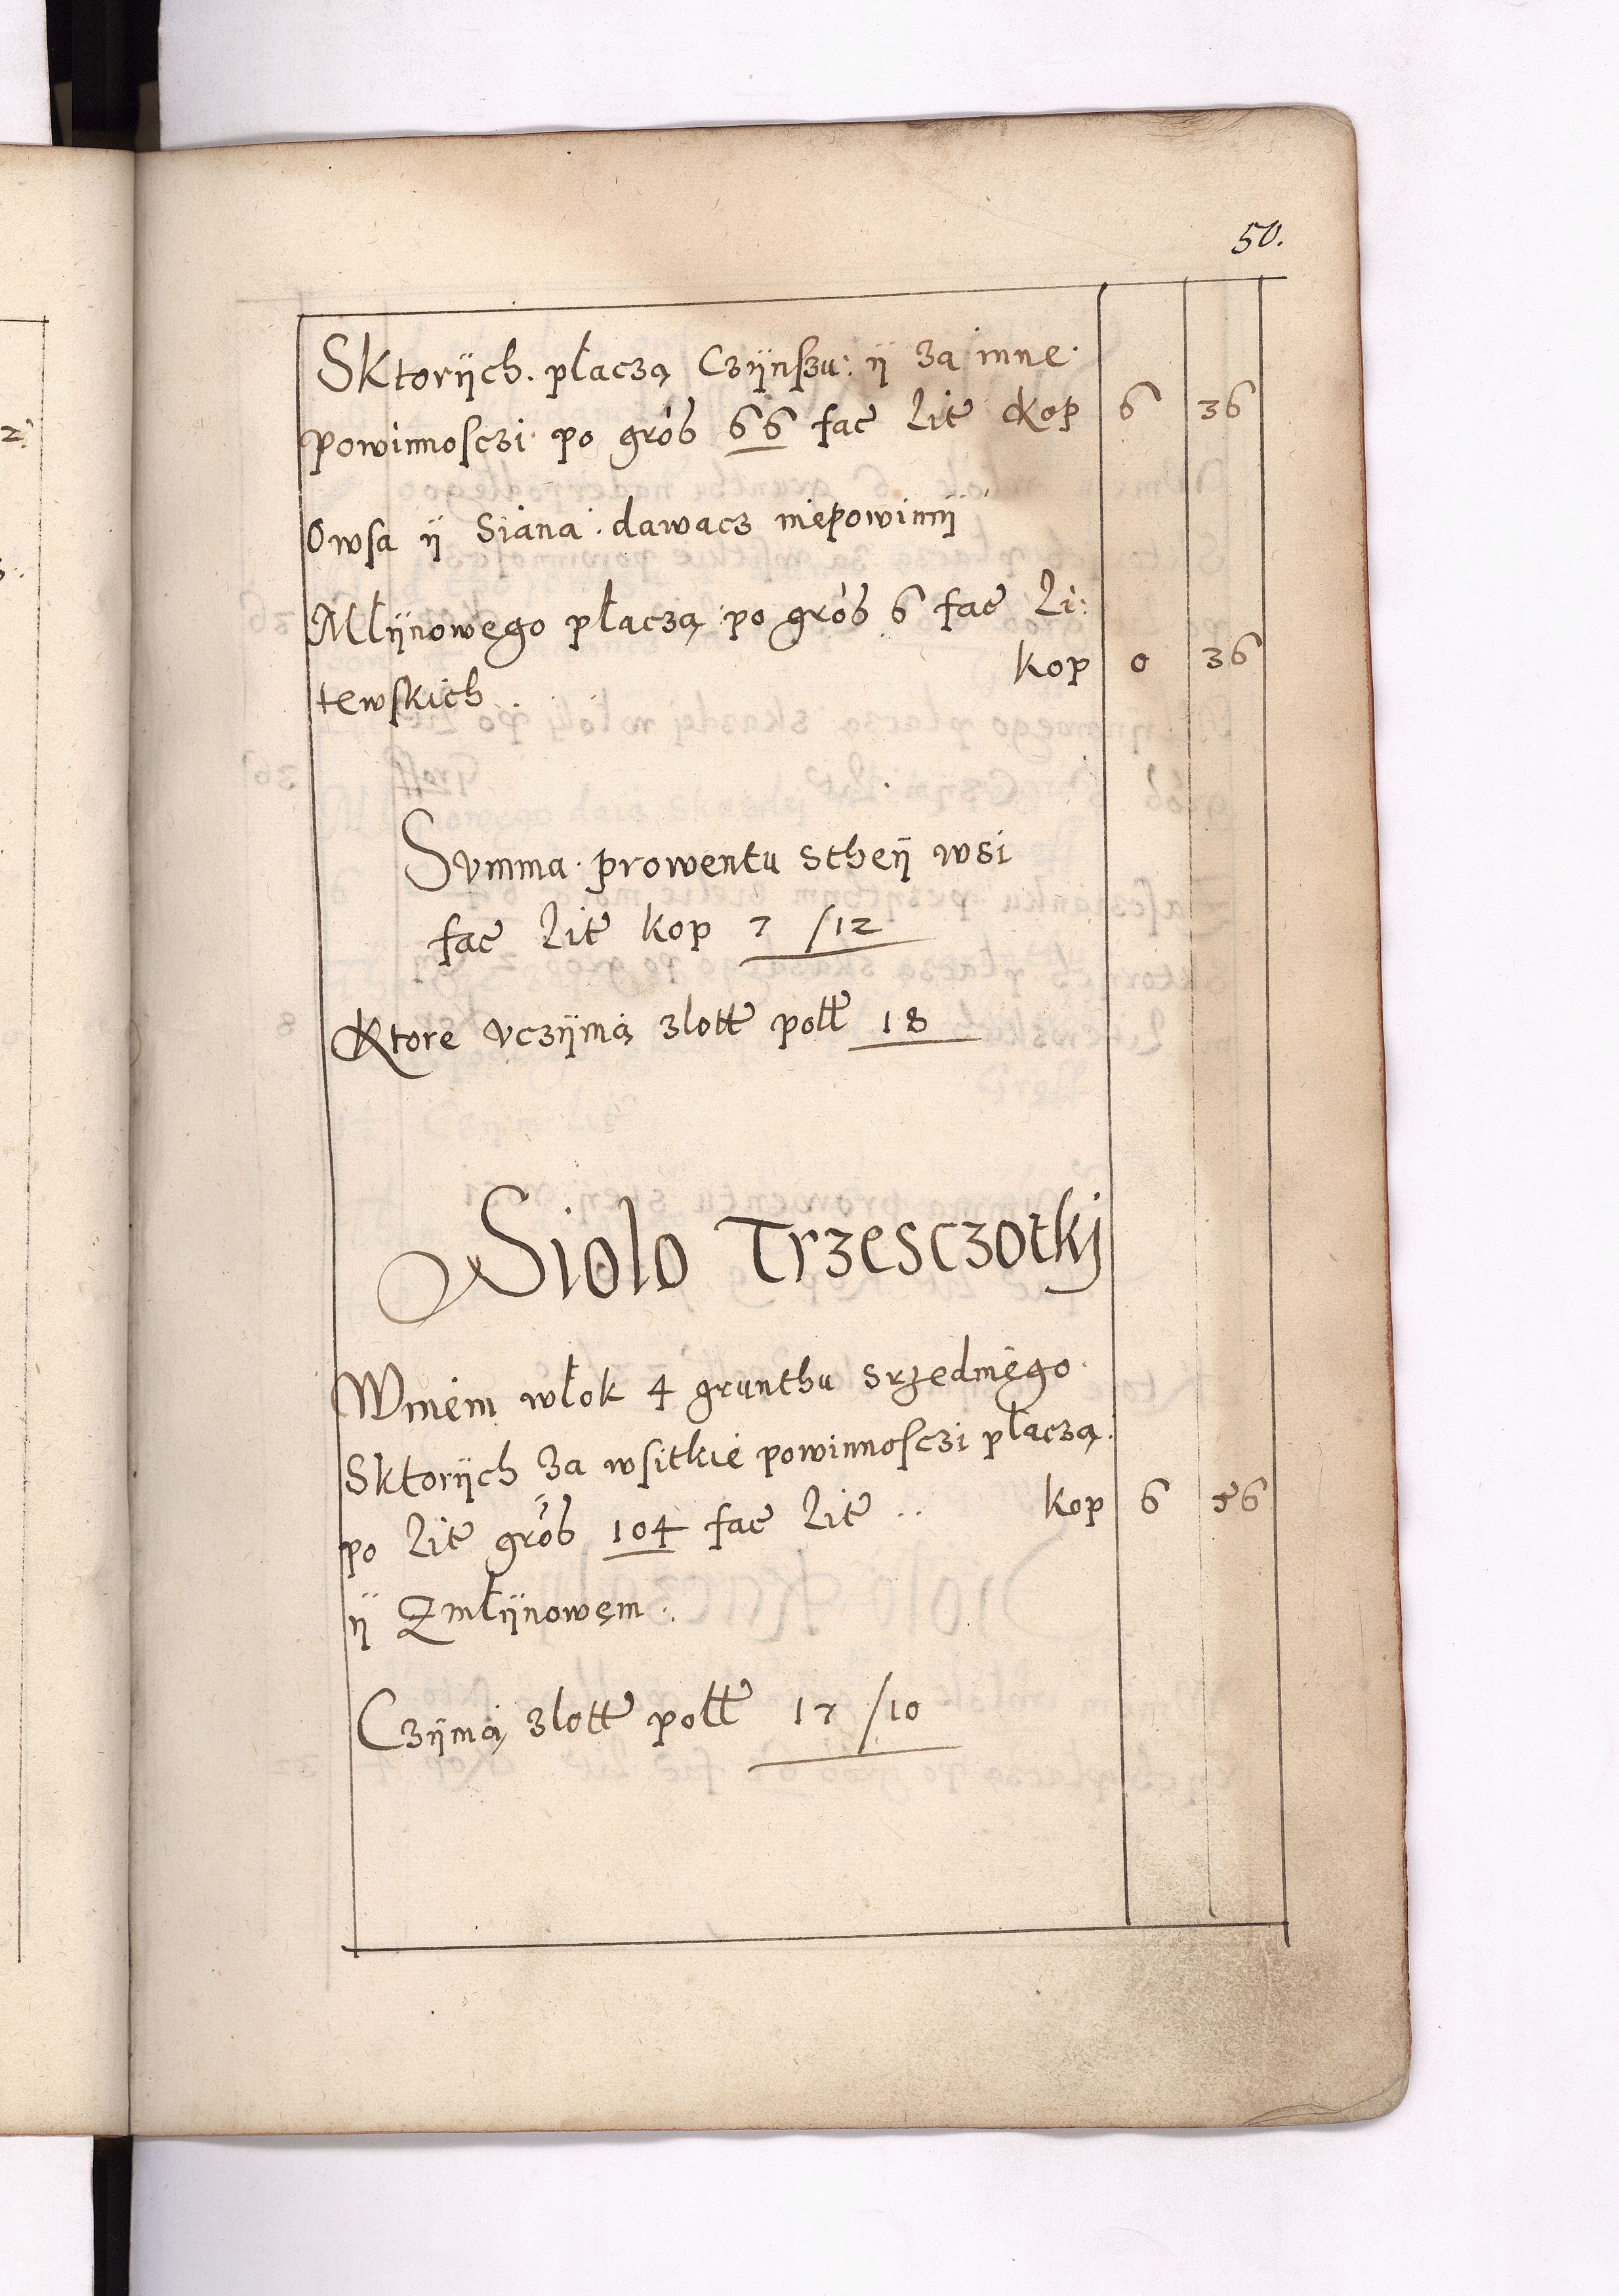 50.
Sktorÿch. płaczą Czÿnszu: ÿ za inne.
powinnosczi po grob 66 fac Lit Kop 6 36
Owsa ÿ Siana dawacz niepowinnÿ
Młÿnowego płaczą po grob 6 fac Li:
tewskich .. kop 0 36
Summa prowentu stheÿ wsi
fac Lit kop 7 /12
Ktore vczÿnią zlott poll 18
Siolo Trzesczotkj
Wniem włok 4 grunthu srzedniego
Sktorÿch za wsitkie powinnosczi płaczą.
po Lit grob 104 fac Lit .. kop 6 56
ÿ Zmłÿnowem.
Czÿnią zlott poll 17 /10